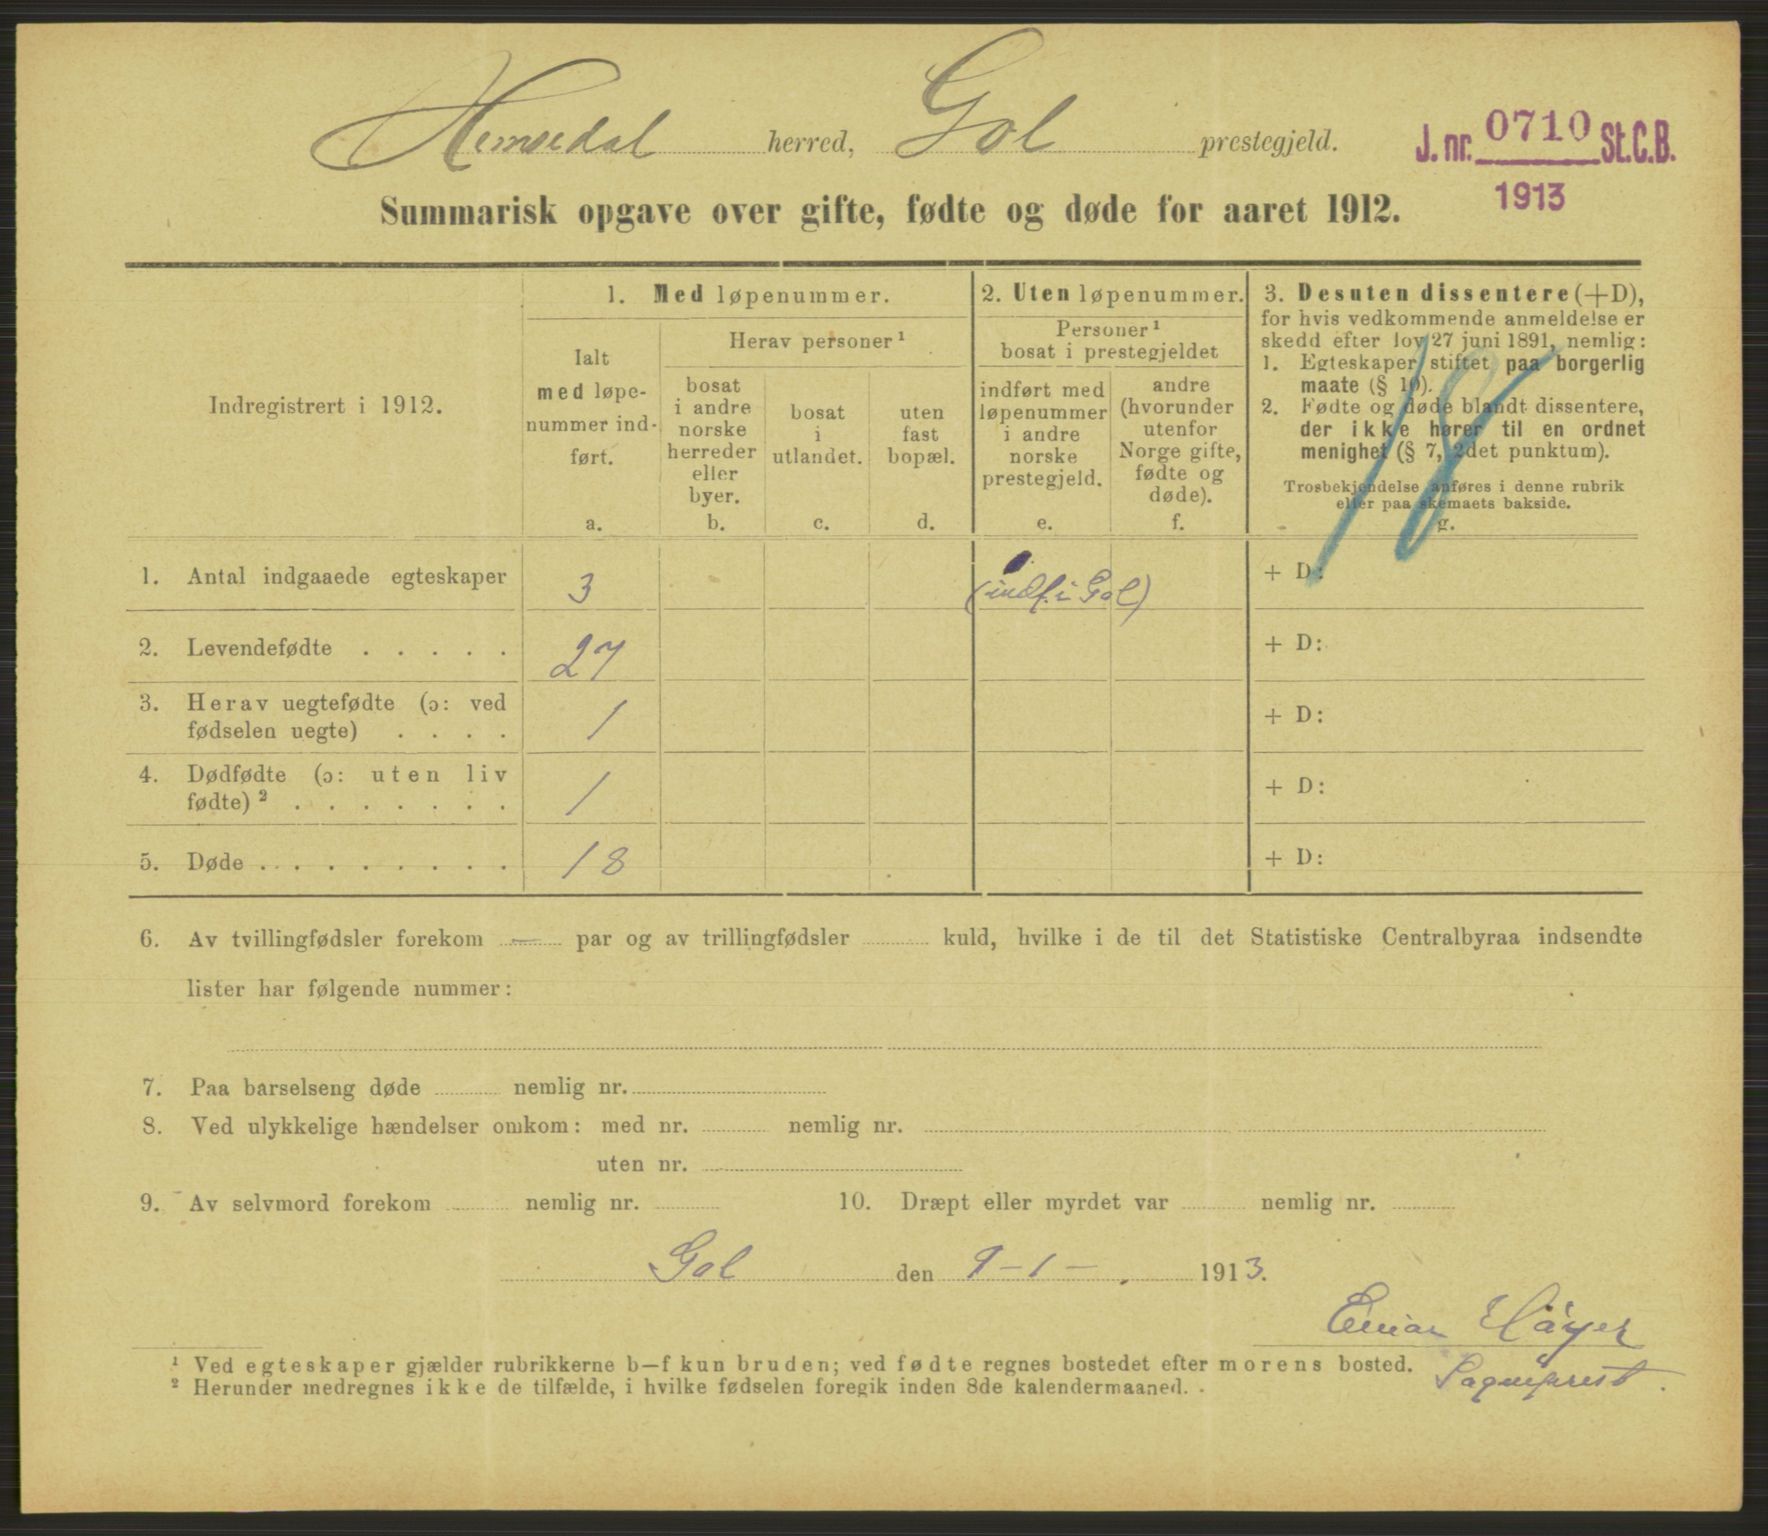 Hemsedal herred, Gol prestegjeld.
J. nr. 0710 St.C.B.
1913
Summarisk opgave over gifte, fødte og døde for aaret 1912.
Indregistrert i 1912.
1. Med løpenummer.
Ialt
med løpe-
nummer ind-
ført.
a.
Herav personer¹
bosat
i andre
norske
herreder
eller
byer.
b.
bosat
i
utlandet.
c.
uten
fast
bopæl.
d.
2. Uten løpenummer.
Personer¹
bosat i prestegjeldet
indført med
løpenummer
i andre
norske
prestegjeld.
e.
andre
(hvorunder
utenfor
Norge gifte,
fødte og
døde).
f.
3. Desuten dissentere (+D),
for hvis vedkommende anmeldelse er
skedd efter lov 27 juni 1891, nemlig:
1. Egteskaper stiftet paa borgerlig
maate (§ 10).
2. Fødte og døde blandt dissentere,
der ikke hører til en ordnet
menighet (§ 7, 2det punktum).
Trosbekjendelse anføres i denne rubrik
eller paa skemaets bakside.
g.
18
1. Antal indgaaede egteskaper 3 (indf. i Gol) + D:
2. Levendefødte . . . . . 27 + D:
3. Herav uegtefødte (ɔ: ved
fødselen uegte) . . . . 1 + D:
4. Dødfødte (ɔ: uten liv
fødte)² . . . . . . . 1 + D:
5. Døde . . . . . . . . 18 + D:
6. Av tvillingfødsler forekom — par og av trillingfødsler kuld, hvilke i de til det Statistiske Centralbyraa indsendte
lister har følgende nummer:
7. Paa barselseng døde nemlig nr.
8. Ved ulykkelige hændelser omkom: med nr. nemlig nr.
uten nr.
9. Av selvmord forekom nemlig nr. 10. Dræpt eller myrdet var nemlig nr.
Gol den 9-1- 1913.
Einar Høyer
Sogneprest.
¹ Ved egteskaper gjælder rubrikkerne b—f kun bruden; ved fødte regnes bostedet efter morens bosted.
² Herunder medregnes ikke de tilfælde, i hvilke fødselen foregik inden 8de kalendermaaned.